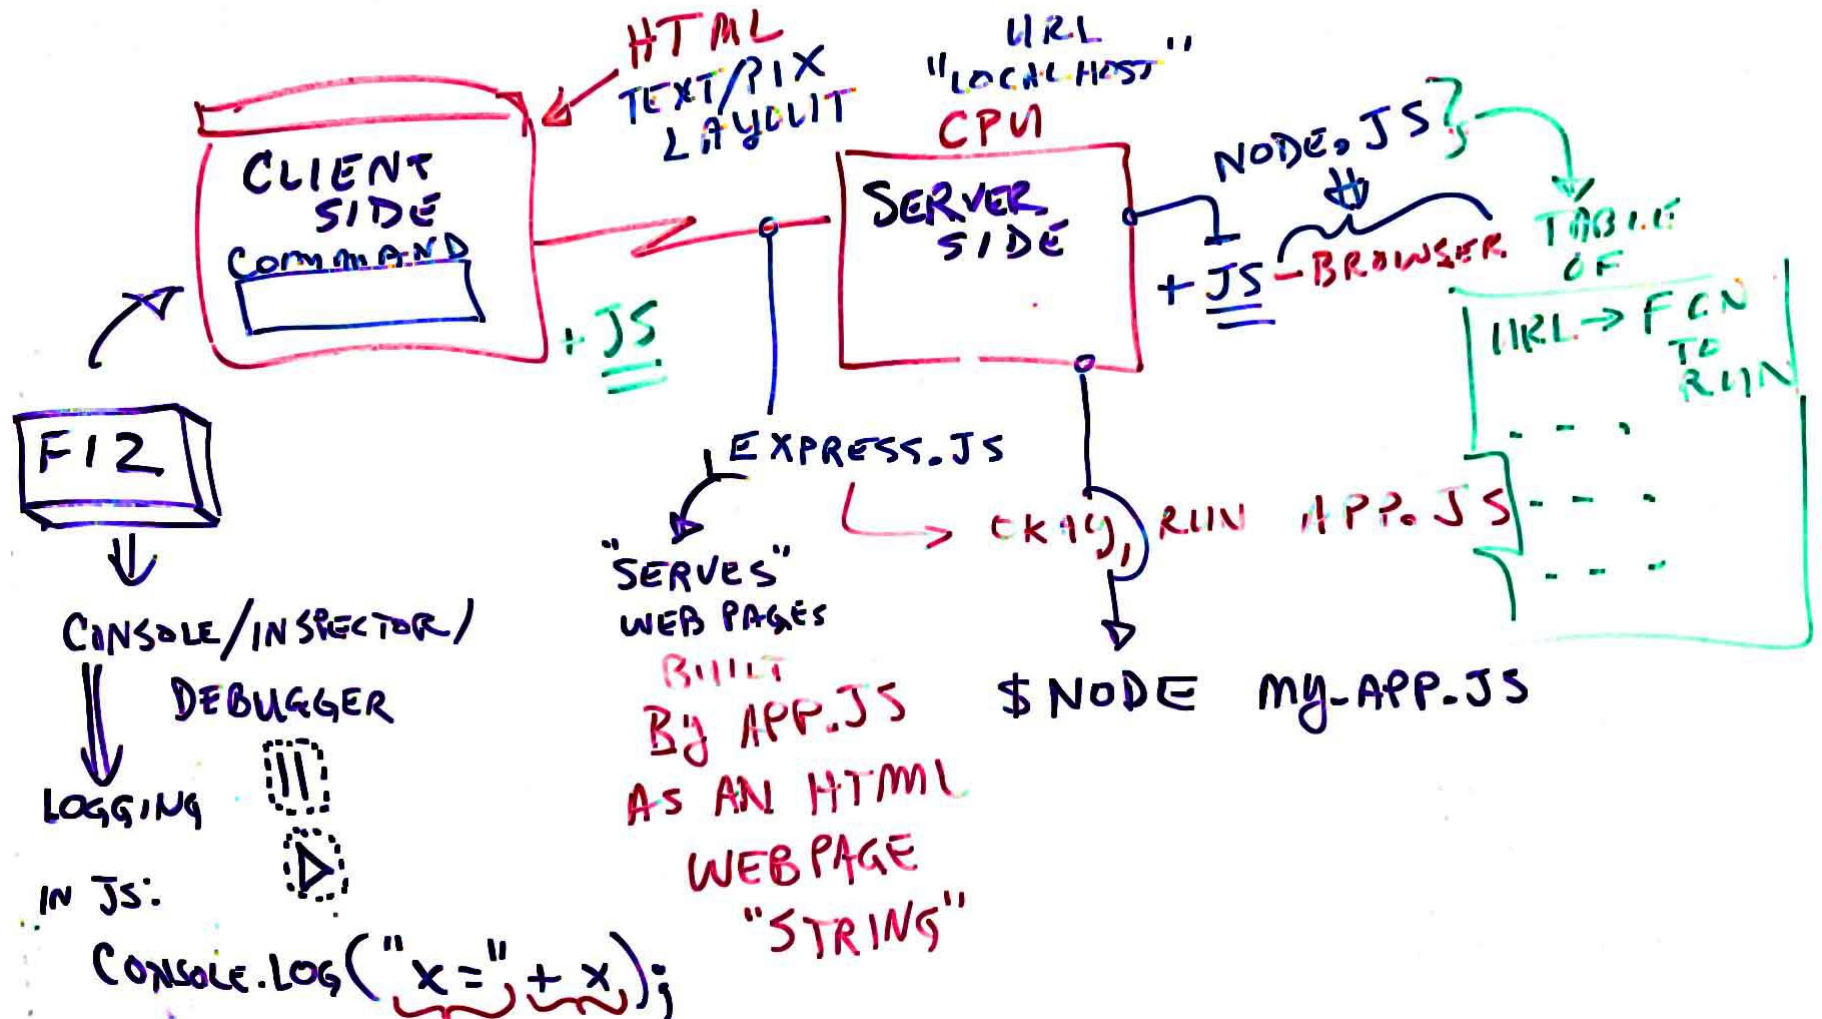 HTML
TEXT/PIX
LAYOUT
URL
"LOCALHOST"
CPU
CLIENT
SIDE
COMMAND
+ JS
SERVER
SIDE
NODE.JS
+ JS - BROWSER
TABLE
OF
URL → FCN
TO
RUN
- - -
- - -
- - -
F12
CONSOLE/INSPECTOR/
DEBUGGER
LOGGING
IN JS:
CONSOLE.LOG("x=" + x);
EXPRESS.JS
"SERVES"
WEB PAGES
BUILT
By APP.JS
AS AN HTML
WEBPAGE
"STRING"
OKAY, RUN APP.JS
$ NODE my-APP.JS